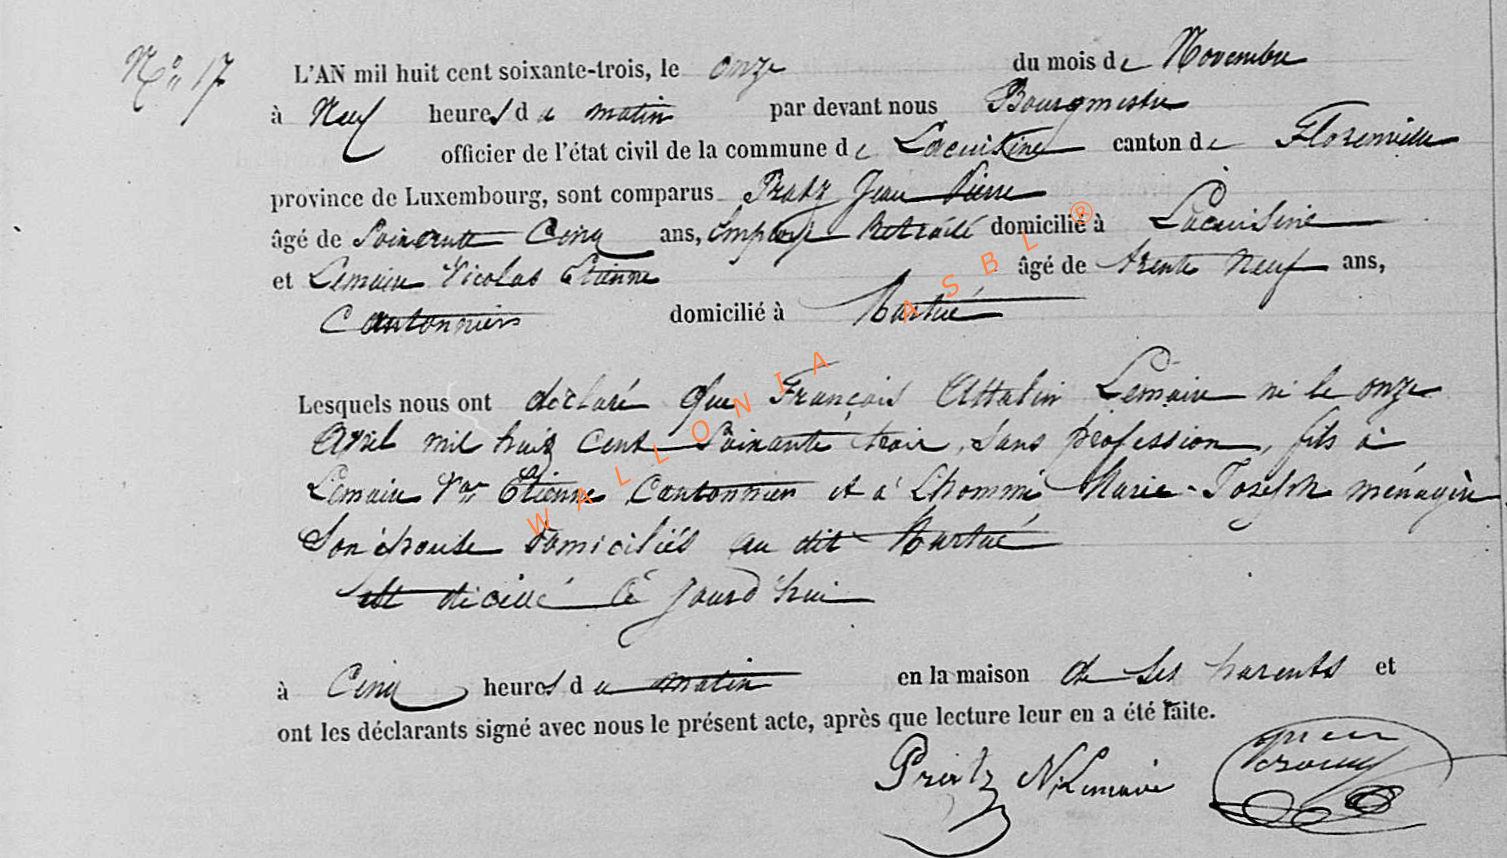 N° 17 L'AN mil huit cent soixante-trois, le onze du mois de Novembre
à Neuf heures du matin par devant nous Bourgmestre
officier de l'état civil de la commune de Lacuisine canton de Florenville
province de Luxembourg, sont comparus Jean Pierre
âgé de Soixante Cinq ans, Employé Retraité domicilié à Lacuisine
et Lemaire Nicolas Etienne âgé de trente Neuf ans,
Cantonnier domicilié à Martué
Lesquels nous ont déclaré que François Lemaire né le onze
Avril mil huit cent Soixante trois, Sans profession, fils à
Lemaire Nas Etienne Cantonnier et à Lhommé Marie-Joseph ménagère
Son épouse domiciliés au dit Martué
est décédé Cejourd'hui
à Cinq heures du matin en la maison de Ses parents et
ont les déclarants signé avec nous le présent acte, après que lecture leur en a été faite.
N, Lemaire
WALLONIA ASBL ®